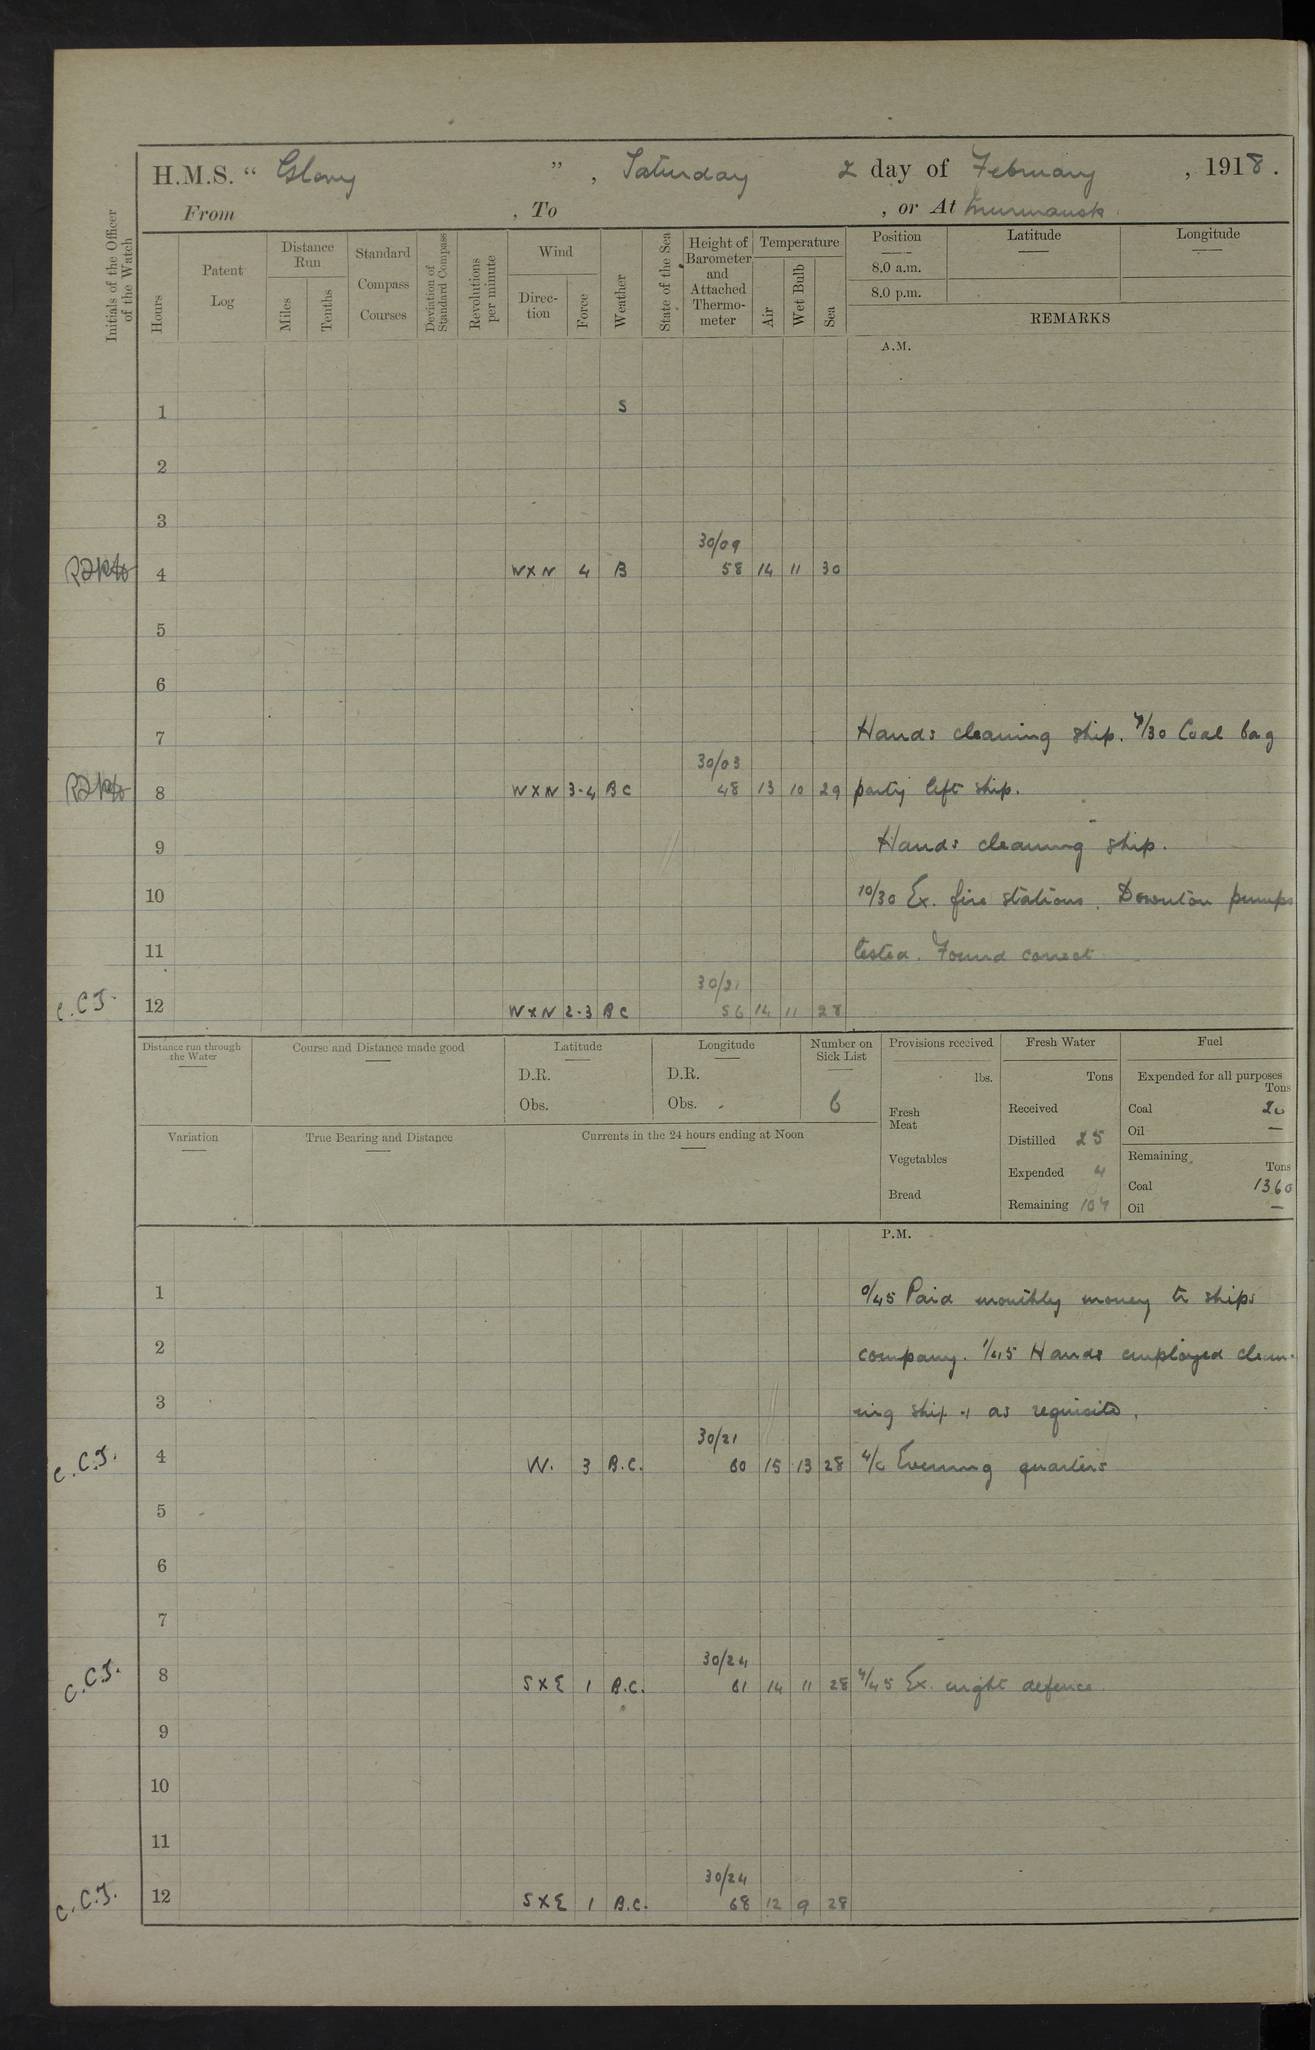 H.M.S. “ Glory ” , Saturday 2 day of February , 1918 .
From , To , or At Murmansk
Initials of the Officer of the Watch
Hours
Patent Log
Distance Run
Miles
Tenths
Standard Compass Courses
Deviation of Standard Compass
Revolutions per minute
Wind
Direc- tion
Force
Weather
State of the Sea
Height of Barometer and Attached Thermo- meter
Temperature
Air
Wet Bulb
Sea
Position
8.0 a.m.
8.0 p.m.
Latitude
Longitude
REMARKS
A.M.
1 S
2
3
30/09
4 WXN 4 B 58 14 11 30
5
6
7 Hands cleaning ship. 7/30 Coal bag
30/03
8 WXN 3-4 BC 48 13 10 29 party left ship.
9 Hands cleaning ship.
10 10/30 Ex. fire stations. Downton pumps
11 tested. Found correct
30/21
C.C.J. 12 WXN 2-3 BC 56 14 11 28
Distance run through the Water
Course and Distance made good
Latitude
D.R.
Obs.
Longitude
D.R.
Obs.
Number on Sick List
6
Provisions received
lbs.
Fresh Meat
Vegetables
Bread
Fresh Water
Tons
Received
Distilled 25
Expended 4
Remaining 107
Fuel
Expended for all purposes
Tons
Coal 20
Oil —
Remaining
Tons
Coal 1360
Oil —
Variation
True Bearing and Distance
Currents in the 24 hours ending at Noon
P.M.
1 0/45 Paid monthly money to ships
2 company. 1/15 Hands employed clean-
3 ing ship & as requisite.
30/21
C.C.J. 4 W. 3 B.C. 60 15 13 28 4/0 Evening quarters
5
6
7
30/24
C.C.J. 8 SXE 1 B.C. 61 14 11 28 7/45 Ex. night defence.
9
10
11
30/24
C.C.J. 12 SXE 1 B.C. 68 12 9 28